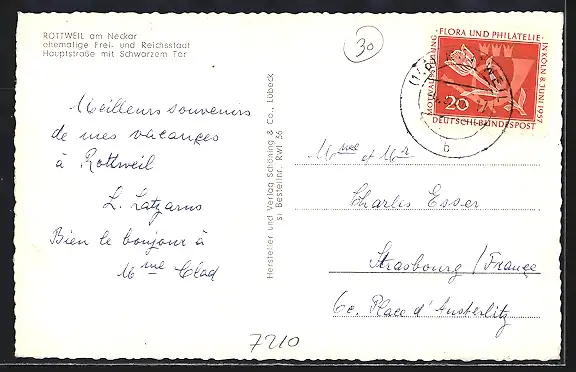 ROTTWEIL am Neckar
ehemalige Frei- und Reichsstadt
Hauptstraße mit Schwarzem Tor
Meilleurs souvenirs
de mes vacances
à Rottweil
L. Latzarus
Bien le bonjour à
Mme Clad
Hersteller und Verlag Schöning & Co., Lübeck
Bestellnr. RWl 36
30
MOTIVAUSSTELLUNG FLORA UND PHILATELIE IN KÖLN 8. JUNI 1957
20
DEUTSCHE BUNDESPOST
b
Mme et Mr
Charles Esser
Strasbourg / France
6c. Place d'Austerlitz
7210